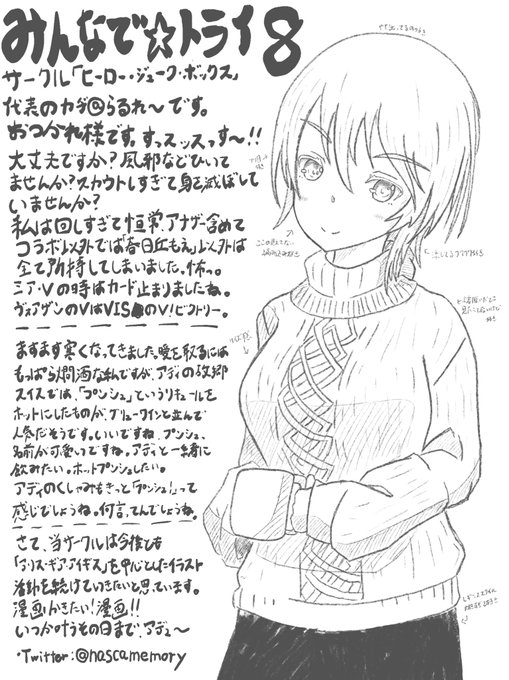 みんなで☆トライ8
サークル「ヒーロー・ジューク・ボックス」
代表のカヂ◎らるれ～です。
おつかれ様です。すっスッスっす～!!
大丈夫ですか?風邪などひいて
ませんか?スカウトしすぎて身を滅ぼして
いませんか?
私は回しすぎて恒常、アナザー含めて
コラボ以外では「春日丘もえ」以外は
全て所持してしまいました。怖っ。
ミア・Vの時はカード止まりましたね。
ヴァアザンのVはVISAのV!ビクトリー。
ますます寒くなってきました。暖を取るには
もっぱら燗酒な私ですが、アディの故郷
スイスでは、「プンシュ」というリキュールを
ホットにしたものが、グリューワインと並んで
人気だそうです。いいですね、プンシュ、
名前が可愛いですね。アディと一緒に
飲みたい。ホットプンシュしたい。
アディのくしゃみもきっと「プンシュ!」って
感じでしょうね。何言ってんでしょうね。
さて、当サークルは今後とも
「アリス・ギア・アイギス」を中心としたイラスト
活動を続けていきたいと思っています。
漫画かきたい!漫画!!
いつか叶うその日まで、アデュ～
・Twitter:@nascamemory